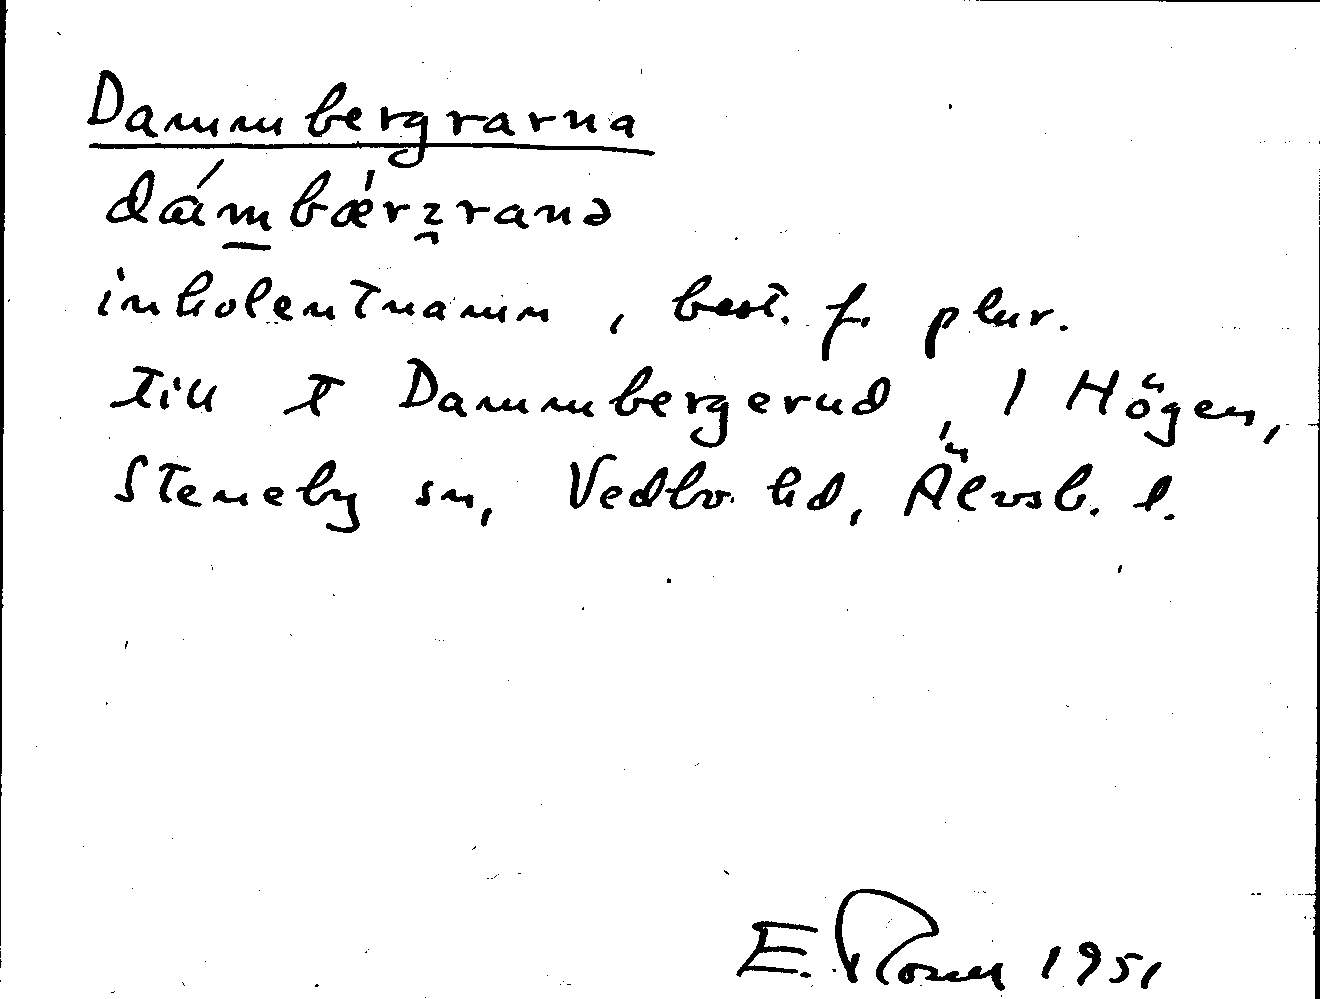 Dammbergrarna
dámbǽrzranə
inkolentnamn, best. f. plur.
till t Dammbergerud, 1 Högen,
Steneby sn, Vedbo hd, Älvsb. l.
E. 1951